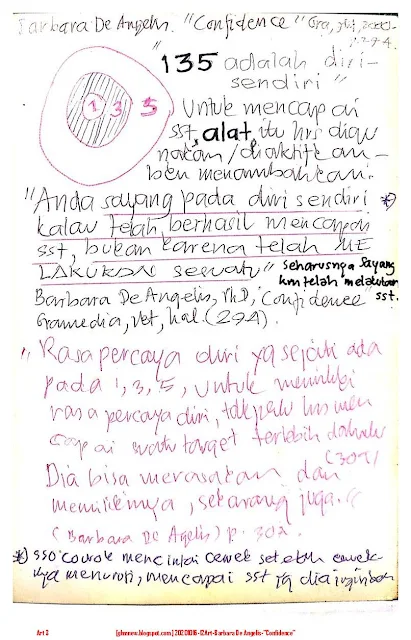 Barbara De Angelis. "Confidence" Gra, Jkt, 2000
274.
"135 adalah diri-
sendiri"
1 3 5
Untuk mencapai
sst, alat itu hrs digu
nakan/diaktifkan-
ben menambahkan.
"Anda sayang pada diri sendiri *)
kalau telah berhasil mencapai
sst, bukan karena telah ME
LAKUKAN sesuatu"
seharusnya sayang
krn telah melakukan
sst.
Barbara De Angelis, PhD, "Confidence
Gramedia, hal. (274).
"Rasa percaya diri yg sejati ada
pada 1, 3, 5, untuk memiliki
rasa percaya diri, tdk perlu hrs men
capai suatu target terlebih dahulu
(302)
Dia bisa merasakan dan
memilikinya, sekarang juga."
(Barbara De Agelis) p. 302.
*) SSO cowok mencintai cewek setelah cewek
nya menuruti, mencapai sst yg dia inginkan
Art 3
[gbmnew.blogspot.com] 20201016-12Art-Barbara De Angelis-"Confidence"